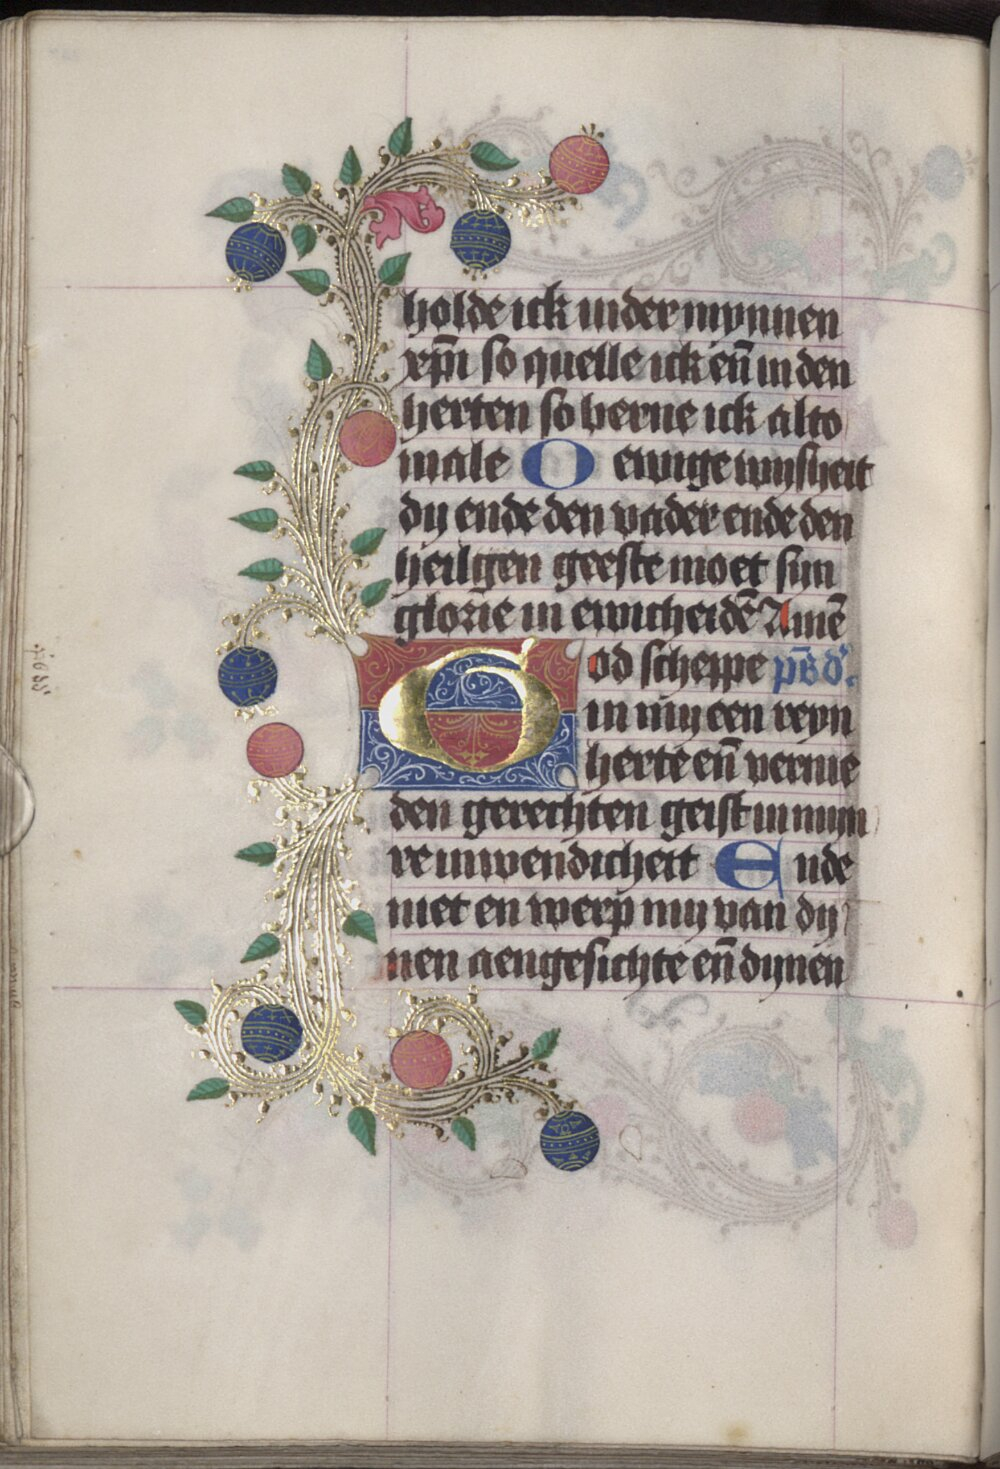 holde ick inder mynnen
xp̄i so quelle ick eñ in den
herten so berne ick alto
male O ewige wijsheit
dy ende den vader ende den
heilgen geeste moet sijn
glorie in ewicheidē Amē
God scheppe
in mij een reyn
herte eñ vernie
den gerechten geist in mijn
re inwendicheit Ende
niet en werp mij van dy
nen aengesichte eñ dijnen